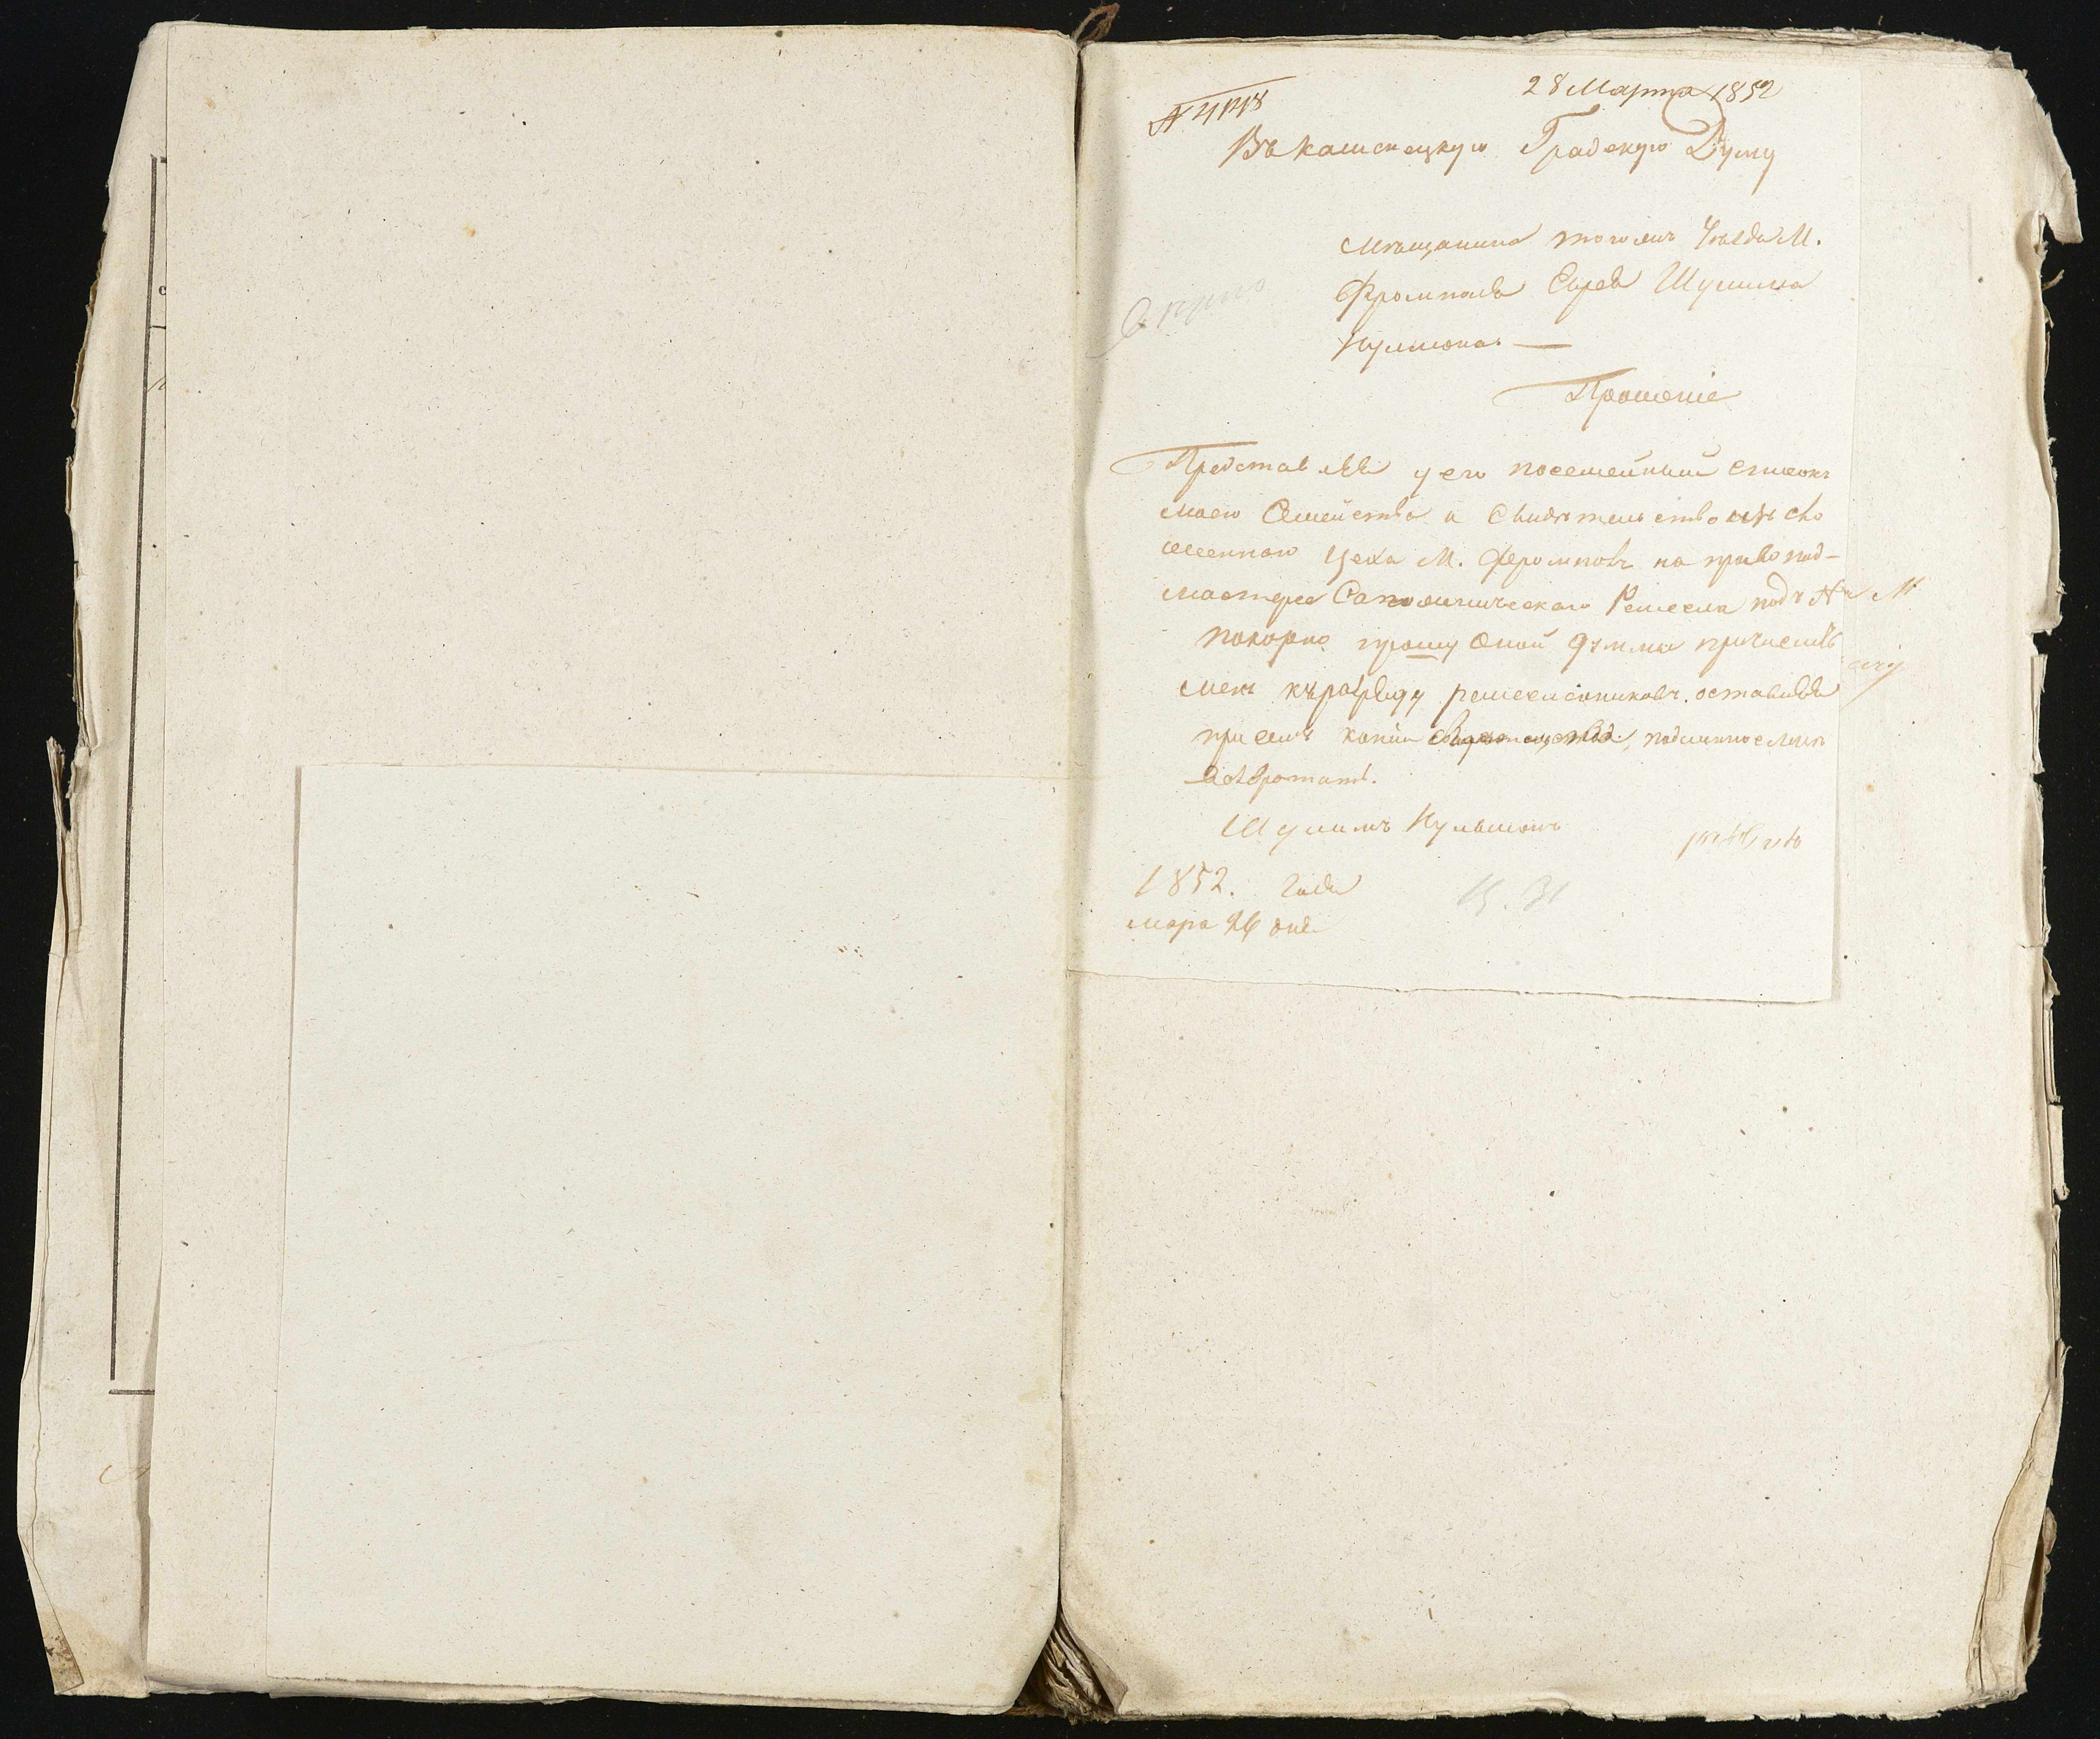 28 Марта 1852
№ 4148
Въ Каменецкую Градскую Думу
Мѣщанина того же Уѣзда М.
Фрампола Еврея Шулима
Кульмона —
Прошеніе
Представляя у сего посемейный списокъ
моего Семейства и Свидѣтельство изъ
цеха М. Фрамполь на право под-
мастера Сапожническаго Ремесла подъ №
покорно прошу оной Думы причислить
меня къ разряду ремесленниковъ. оставивъ
при семъ копіи подлинное мнѣ
возвратить.
Шулимъ Кульмонъ
1852. года
мара 26 дня